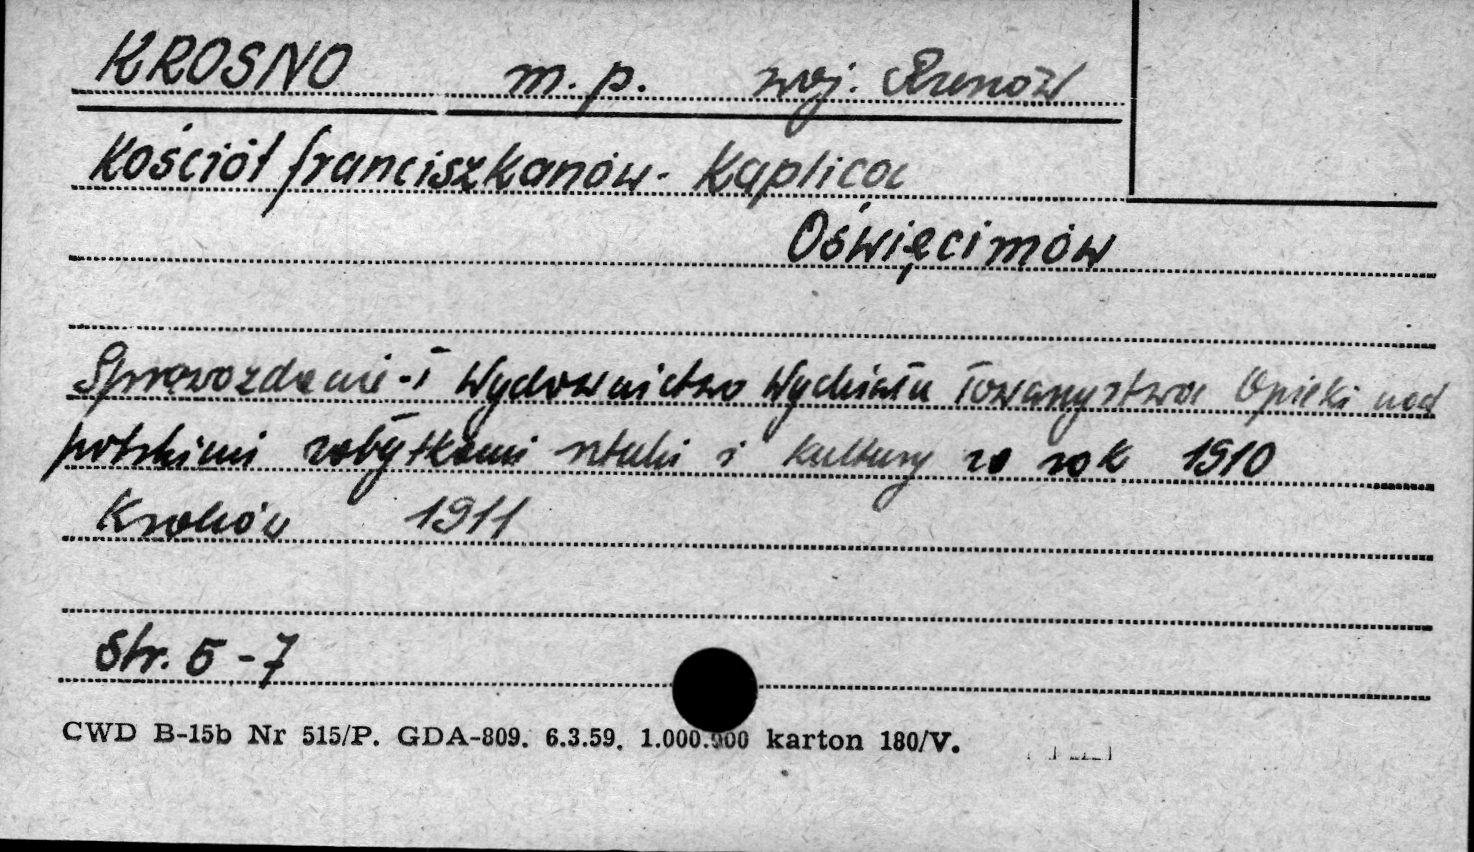 KROSNO m.p. woj. Rzeszów
Kościół franciszkanów - Kaplica
Oświęcimów
Sprawozdanie i Wydawnictwo Wydziału Towarzystwa Opieki nad
polskimi zabytkami sztuki i kultury za rok 1910
Kraków 1911
Str. 5-7
CWD B-15b Nr 515/P. GDA-809. 6.3.59. 1.000.000 karton 180/V.